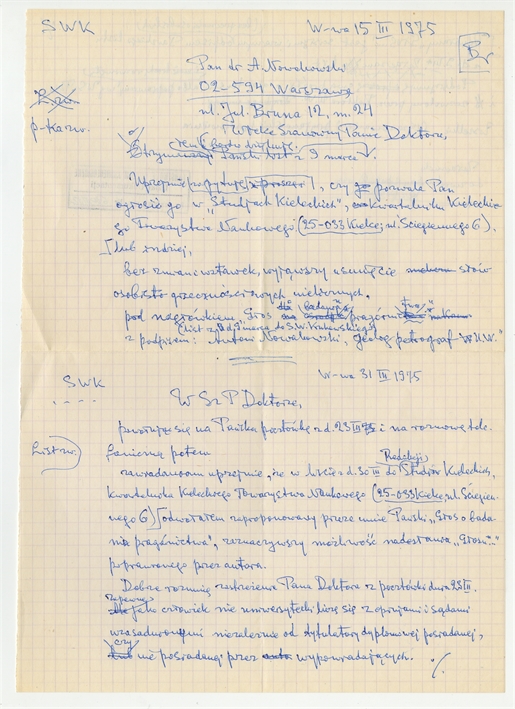 SWK
W-wa 15 III 1975
Br
Pan dr A. Nowakowski
02-594 Warszawa
ul. Jul. Bruna 12, m. 24
Wielce Szanowny Panie Doktorze,
p-ka zw.
Otrzymałem i bardzo dziękuję.
Pański list z 9 marca.
Uprzejmie zapytuję i proszę, czy pozwala Pan
ogłosić go w "Studjach Kieleckich", kwartalniku Kieleckie-
go Towarzystwa Naukowego (25-033 Kielce, ul. Ściegiennego 6).
[lub indziej,
bez zmian i wstawek, wyjąwszy usunięcie słów
osobisto grzecznościowych nielicznych.
pod nagłówkiem, Głos
(List z d. 9 marca do S.W.
z podpisem: Antoni Nowakowski, geolog petrograf
W-wa 31 III 1975
SWK
W Sz P Doktorze,
powołuję się na Pańską pocztówkę z d. 23 III 75 i na rozmowę tele-
List zw.
foniczną potem
zawiadamiam uprzejmie, że w liście z d. 30 III do Redakcji Studiów Kieleckich,
kwartalnika Kieleckiego Towarzystwa Naukowego (25-033 Kielce, ul. Ściegien-
nego 6) odwołałem zaproponowany przeze mnie Pański "Głos o bada-
nia pragórnictwa", zaznaczywszy możliwość nadesłania "Głosu..."
poprawionego przez autora.
Dobrze rozumię zastrzeżenie Pana Doktora z pocztówki dnia 23 III.
zapewne
jako człowiek nie uniwersytecki liczę się z opiniami i sądami
uzasadnionymi niezależnie od tytulatury dyplomowej posiadanej,
czy
nie posiadanej przez wypowiadających.
%